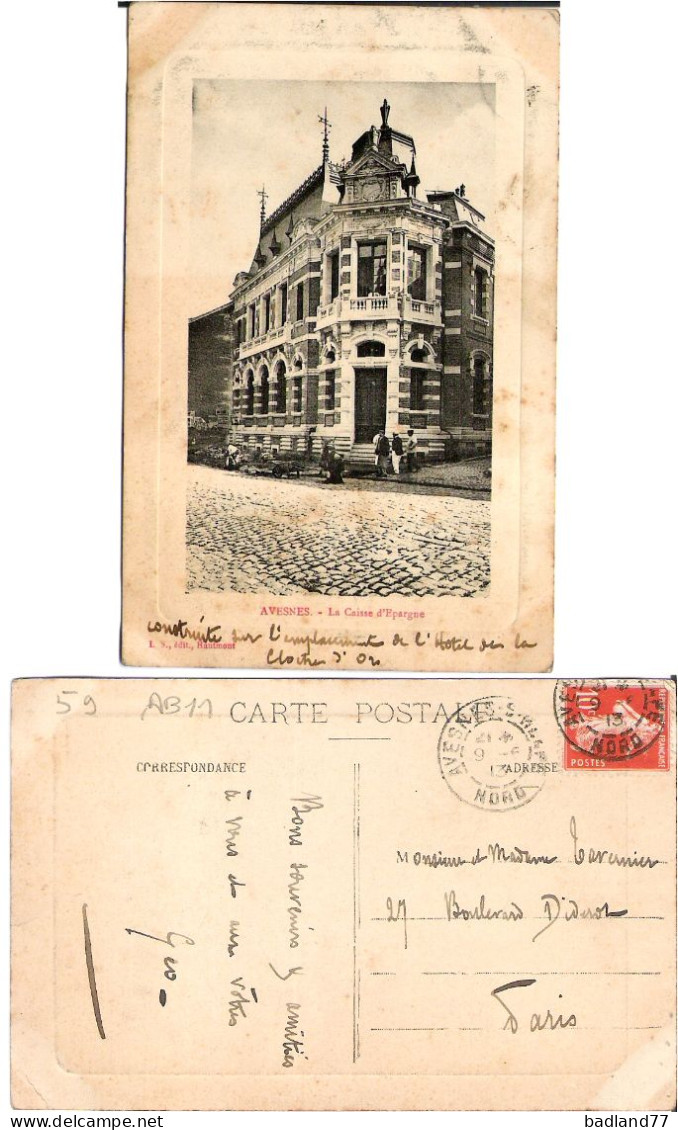 AVESNES. - La Caisse d'Epargne
L. S., édit., Hautmont
construite sur l'emplacement de l'Hôtel de la
Cloche d'Or
59 AB11
CARTE POSTALE
CORRESPONDANCE
ADRESSE
AVESNES-S-HELPE
9
13
NORD
AVESNES
9
13
NORD
10c
REPUBLIQUE FRANÇAISE
POSTES
Bons souvenirs & amitiés
à vous et aux vôtres
Geo
Monsieur et Madame Tavernier
27 Boulevard Diderot
Paris
badland77